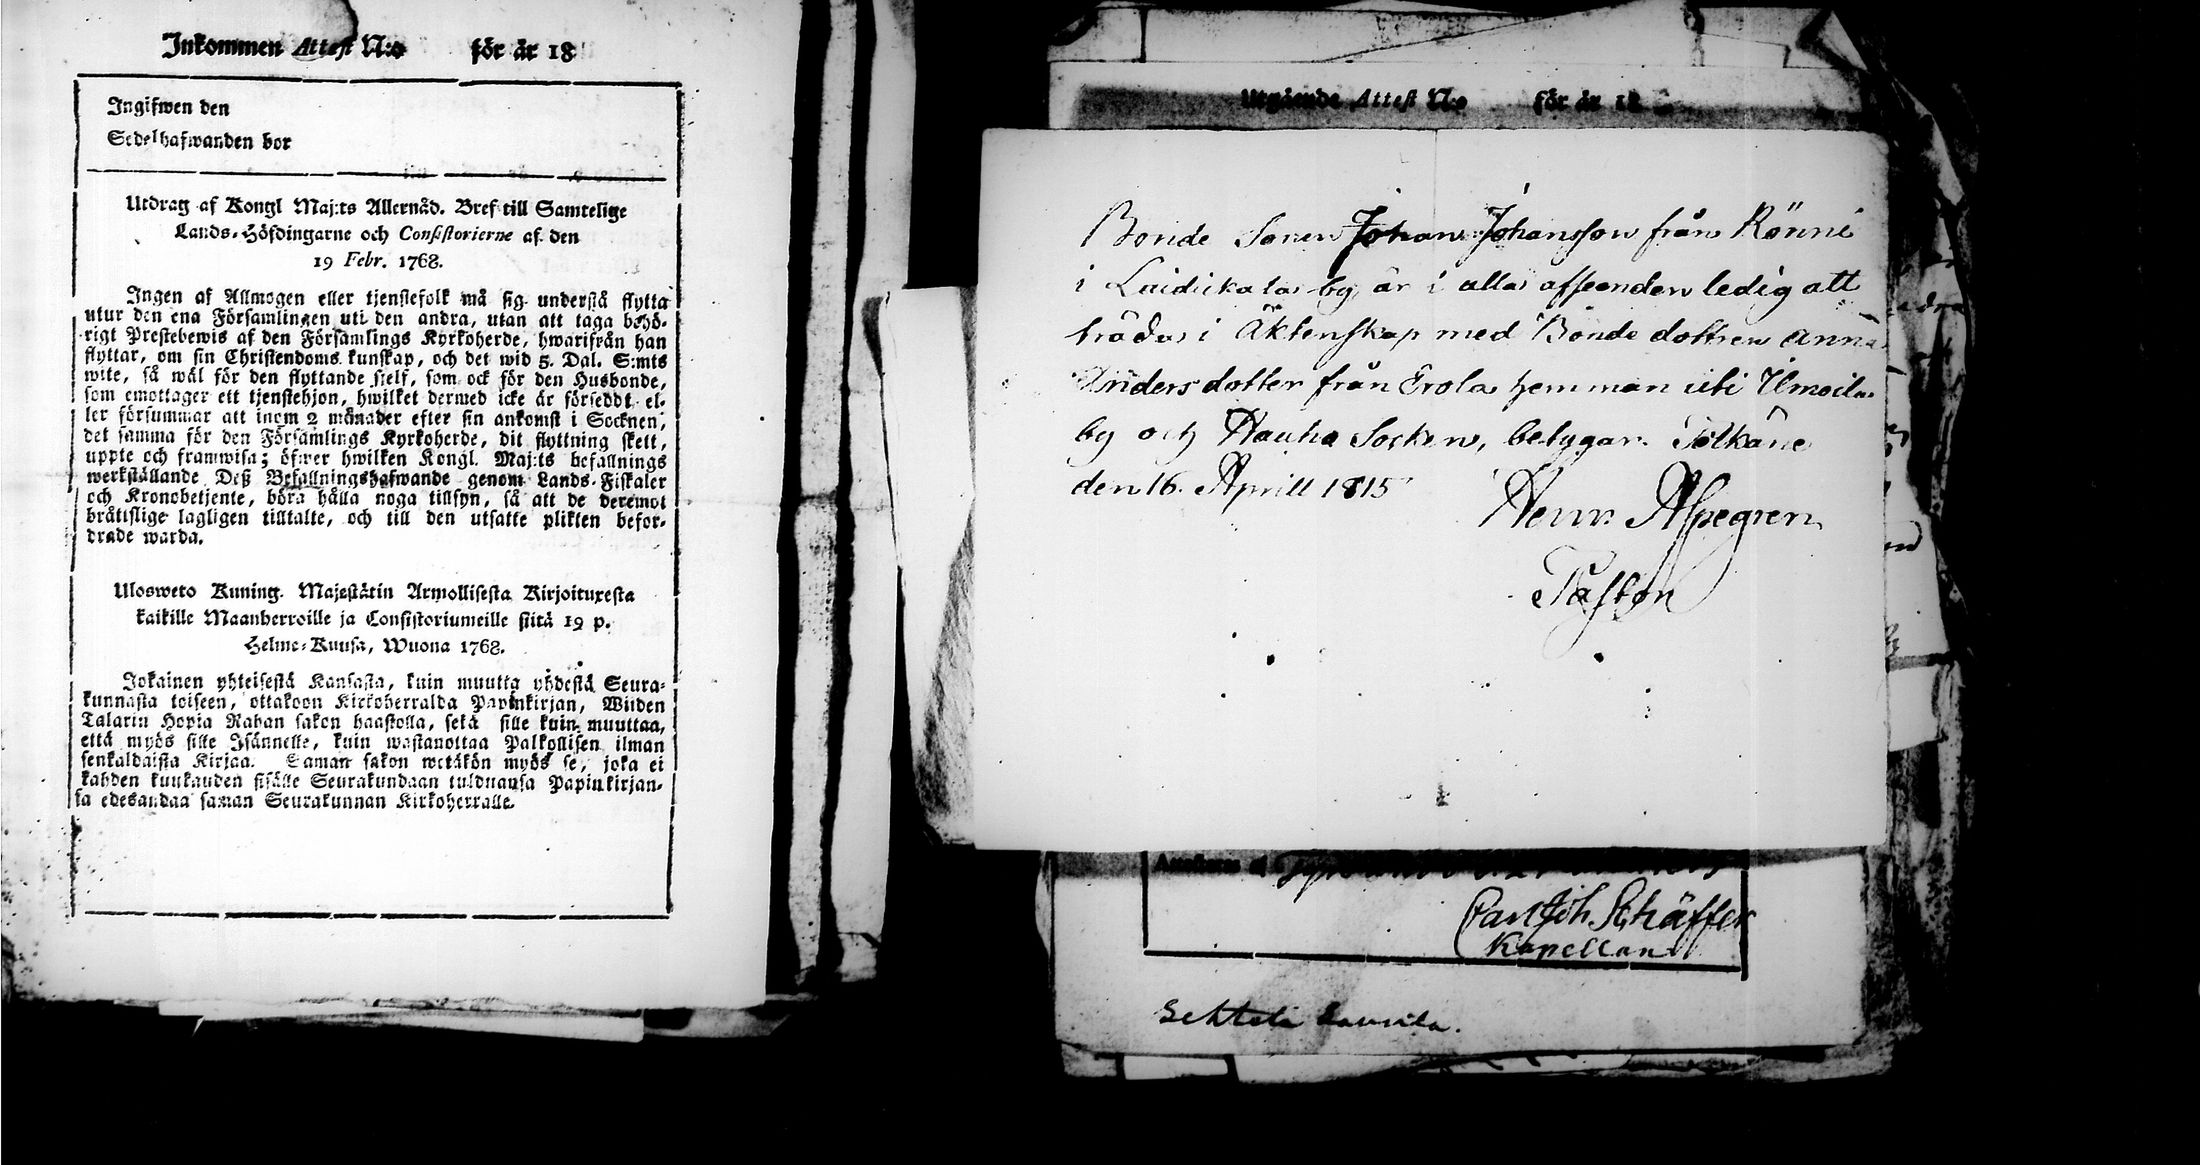 Inkommen Attest N:o för år 18
Ingifwen den
Sedelhafwanden bor
Utdrag af Kongl Maj:ts Allernåd. Bref till Samtelige
Lands-Höfdingarne och Consistorierne af den
19 Febr. 1768.
Ingen af Allmogen eller tjenstefolk må sig understå flytta
utur den ena Församlingen uti den andra, utan att taga behö-
rigt Prestebewis af den Församlings Kyrkoherde, hwarifrån han
flyttar, om sin Christendoms kunskap, och det wid 5. Dal. S:mts
wite, så wäl för den flyttande sielf, som ock för den Husbonde,
som emottager ett tjenstehjon, hwilket dermed icke är försedt, el-
ler försummar att inom 2 månader efter sin ankomst i Socknen,
det samma för den Församlings Kyrkoherde, dit flyttning skett,
uppte och framwisa; öfwer hwilken Kongl. Maj:ts befallnings
werkställande Deß Befallningshafwande genom Lands-Fiskaler
och Kronobetjente, böra hålla noga tillsyn, så att de deremot
bråtislige lagligen tilltalte, och till den utsatte plikten befor-
drade warda.
Ulosweto Kuning. Majestätin Armollisesta Kirjoituxesta
kaikille Maanherroille ja Consistoriumeille siitä 19 p.
Helme-Kuusa, Wuona 1768.
Jokainen yhteisestä Kansasta, kuin muutta yhdestä Seura-
kunnasta toiseen, ottakoon Kirkoherralda Papinkirjan, Wiiden
Talarin Hopia Rahan sakon haastolla, sekä sille kuin muuttaa,
että myös sille Isännelle, kuin wastanottaa Palkollisen ilman
senkaldaista Kirjaa. Saman sakon wetäkön myös se, joka ei
kahden kuukauden sisälle Seurakundaan tulduansa Papinkirjan-
sa edesandaa saman Seurakunnan Kirkoherralle.
Utgående Attest N:o för år 18
Bonde Sonen Johan Johansson från Rönni
i Laidickala by är i alla afseenden ledig att
träda i Äktenskap med Bonde dottren Anna
Anders dotter från Erola hemman uti Ilmoila
by och Hauho Socken, betygar. Pälkäne
den 16. Aprill 1815
Henr. Aspegren
Pastor
Carl Joh. Schäffer
Kapellan